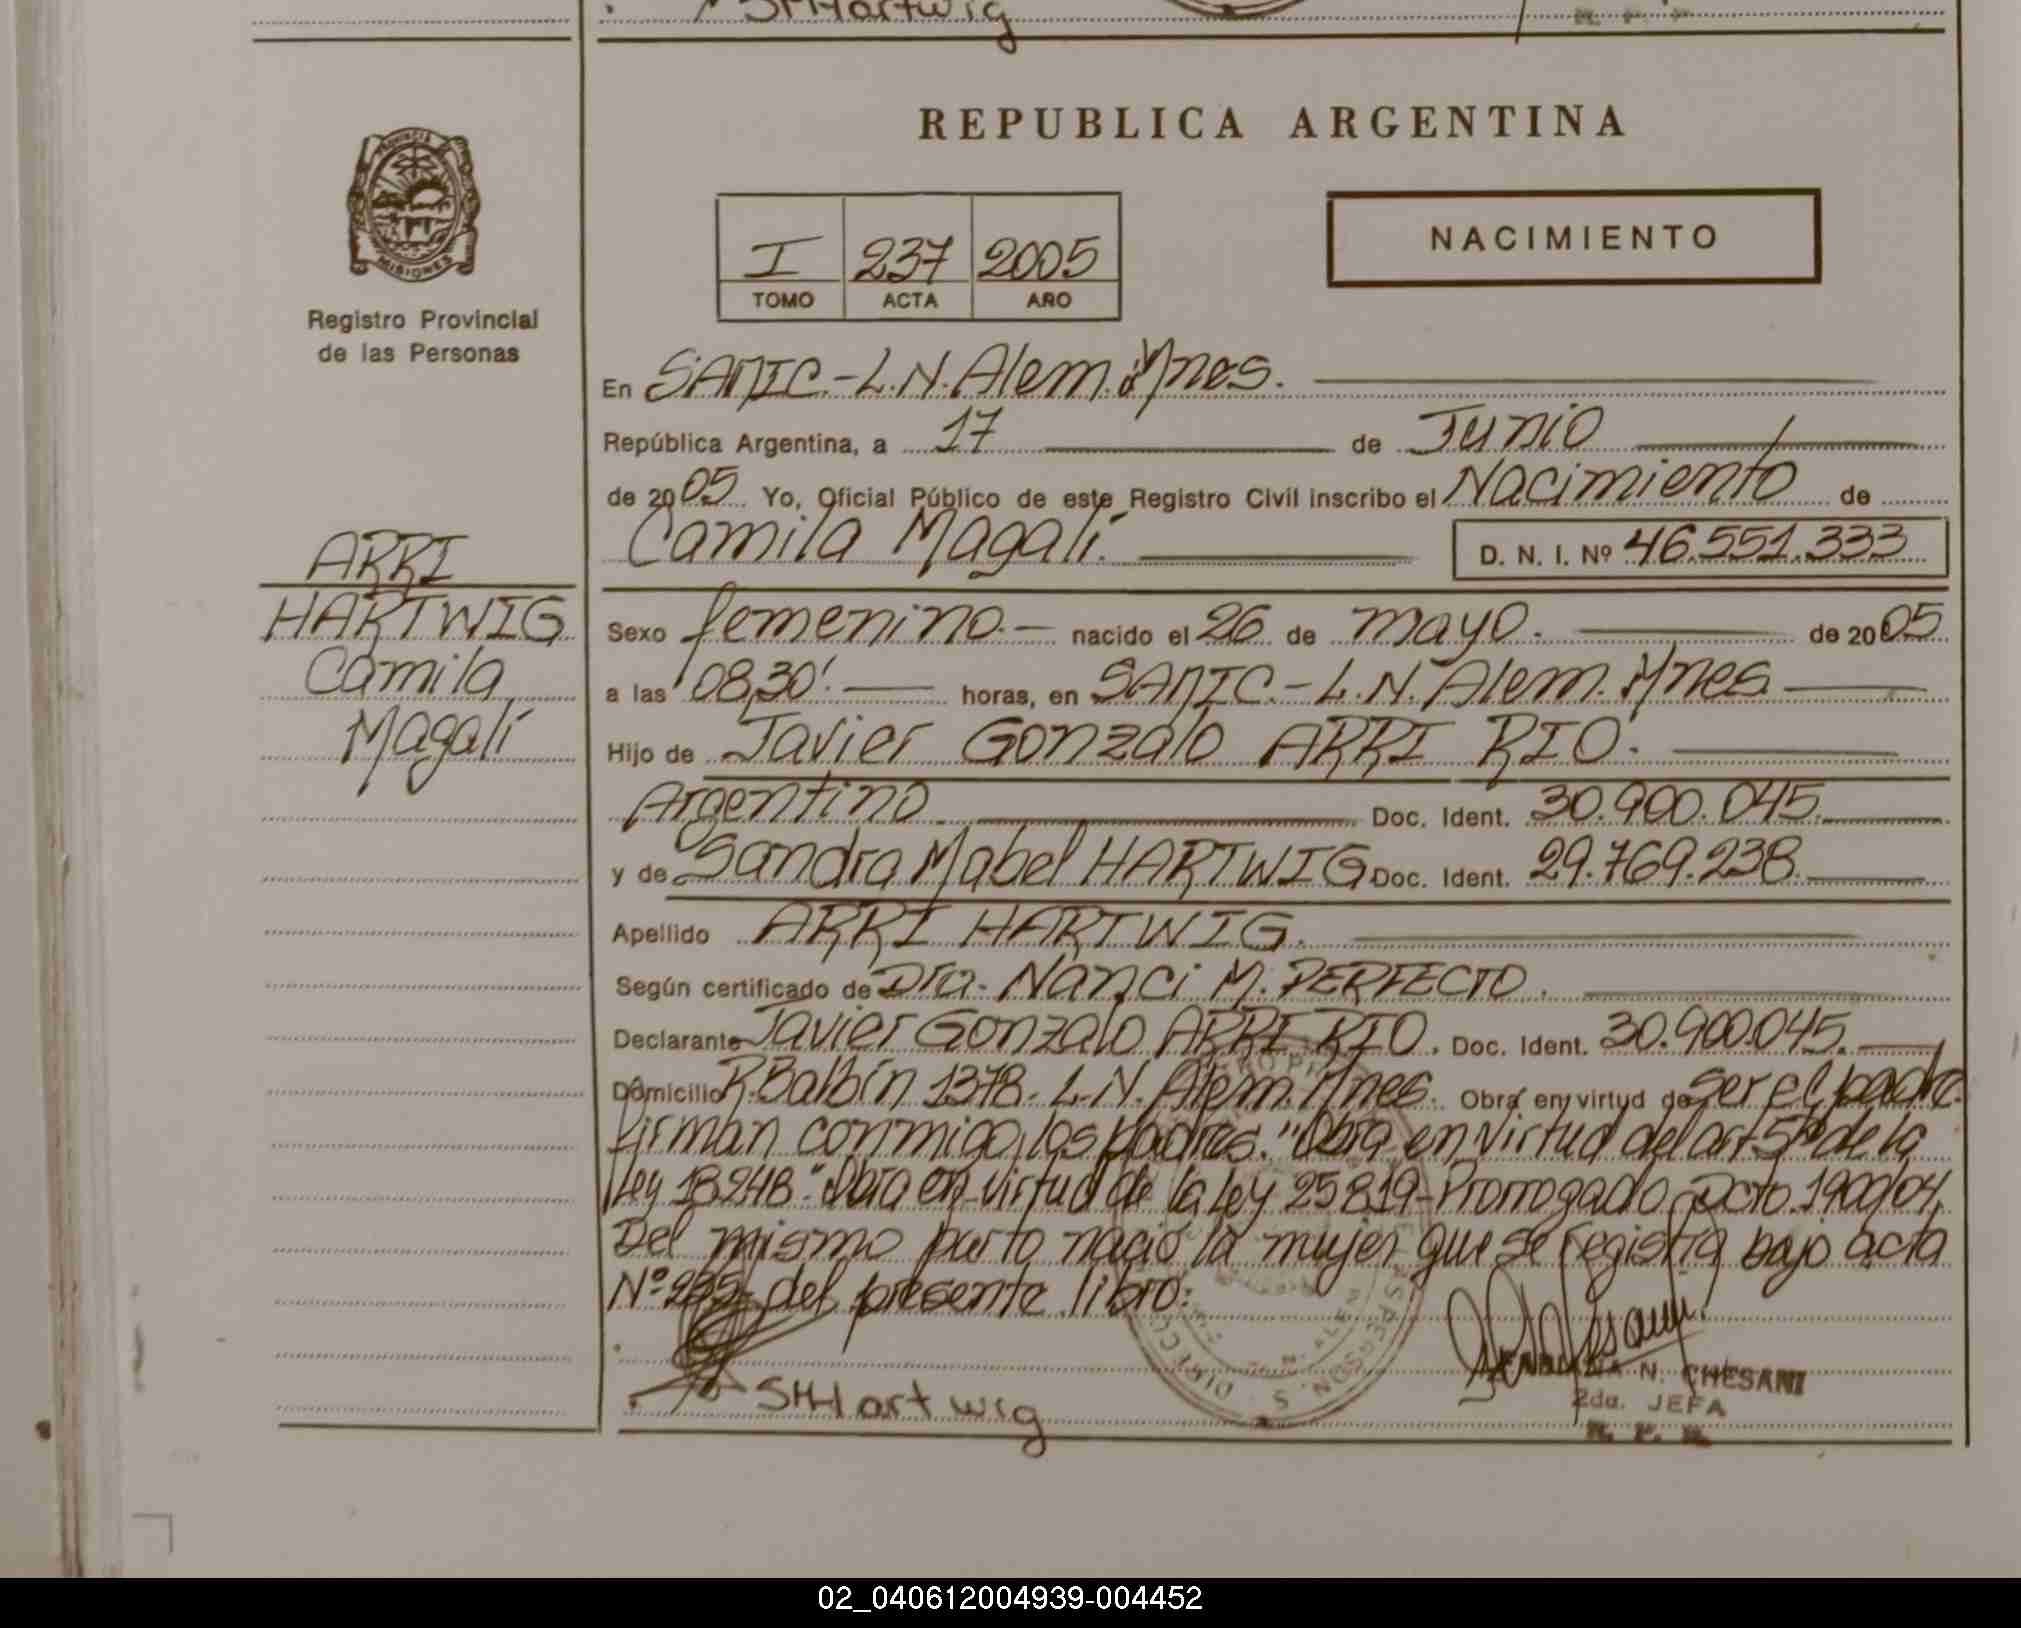 SHHartwig
REPUBLICA ARGENTINA
PROVINCIA
MISIONES
Registro Provincial
de las Personas
I 237 2005
TOMO ACTA AÑO
NACIMIENTO
En SAMIC.-L.N.Alem.Mnes.
República Argentina, a 17 de Junio
de 2005 Yo, Oficial Público de este Registro Civil inscribo el Nacimiento de
Camila Magalí. D. N. I. Nº 46.551.333
ARRI
HARTWIG
Camila
Magalí
Sexo femenino.- nacido el 26 de mayo. de 2005
a las 08,30'. horas, en SAMIC.-L.N.Alem.Mnes.
Hijo de Javier Gonzalo ARRI RIO.
Argentino. Doc. Ident. 30.900.045.
y de Sandra Mabel HARTWIG Doc. Ident. 29.769.238.
Apellido ARRI HARTWIG.
Según certificado de Dra. Nanci M. PERFECTO.
Declarante Javier Gonzalo ARRI RIO. Doc. Ident. 30.900.045.
Domicilio R.Balbín 1378.-L.N.Alem.Mnes. Obra en virtud de ser el padre.
Firman conmigo los padres."Obra en virtud del art 5º de la
Ley 18.248."Obra en virtud de la Ley 25819-Prorrogado Dcto.1900/04.
Del mismo parto nació la mujer que se registra bajo acta
Nº 235 del presente libro.
SHHartwig
N. CHESANI
2da. JEFA
R. P. P.
02_040612004939-004452